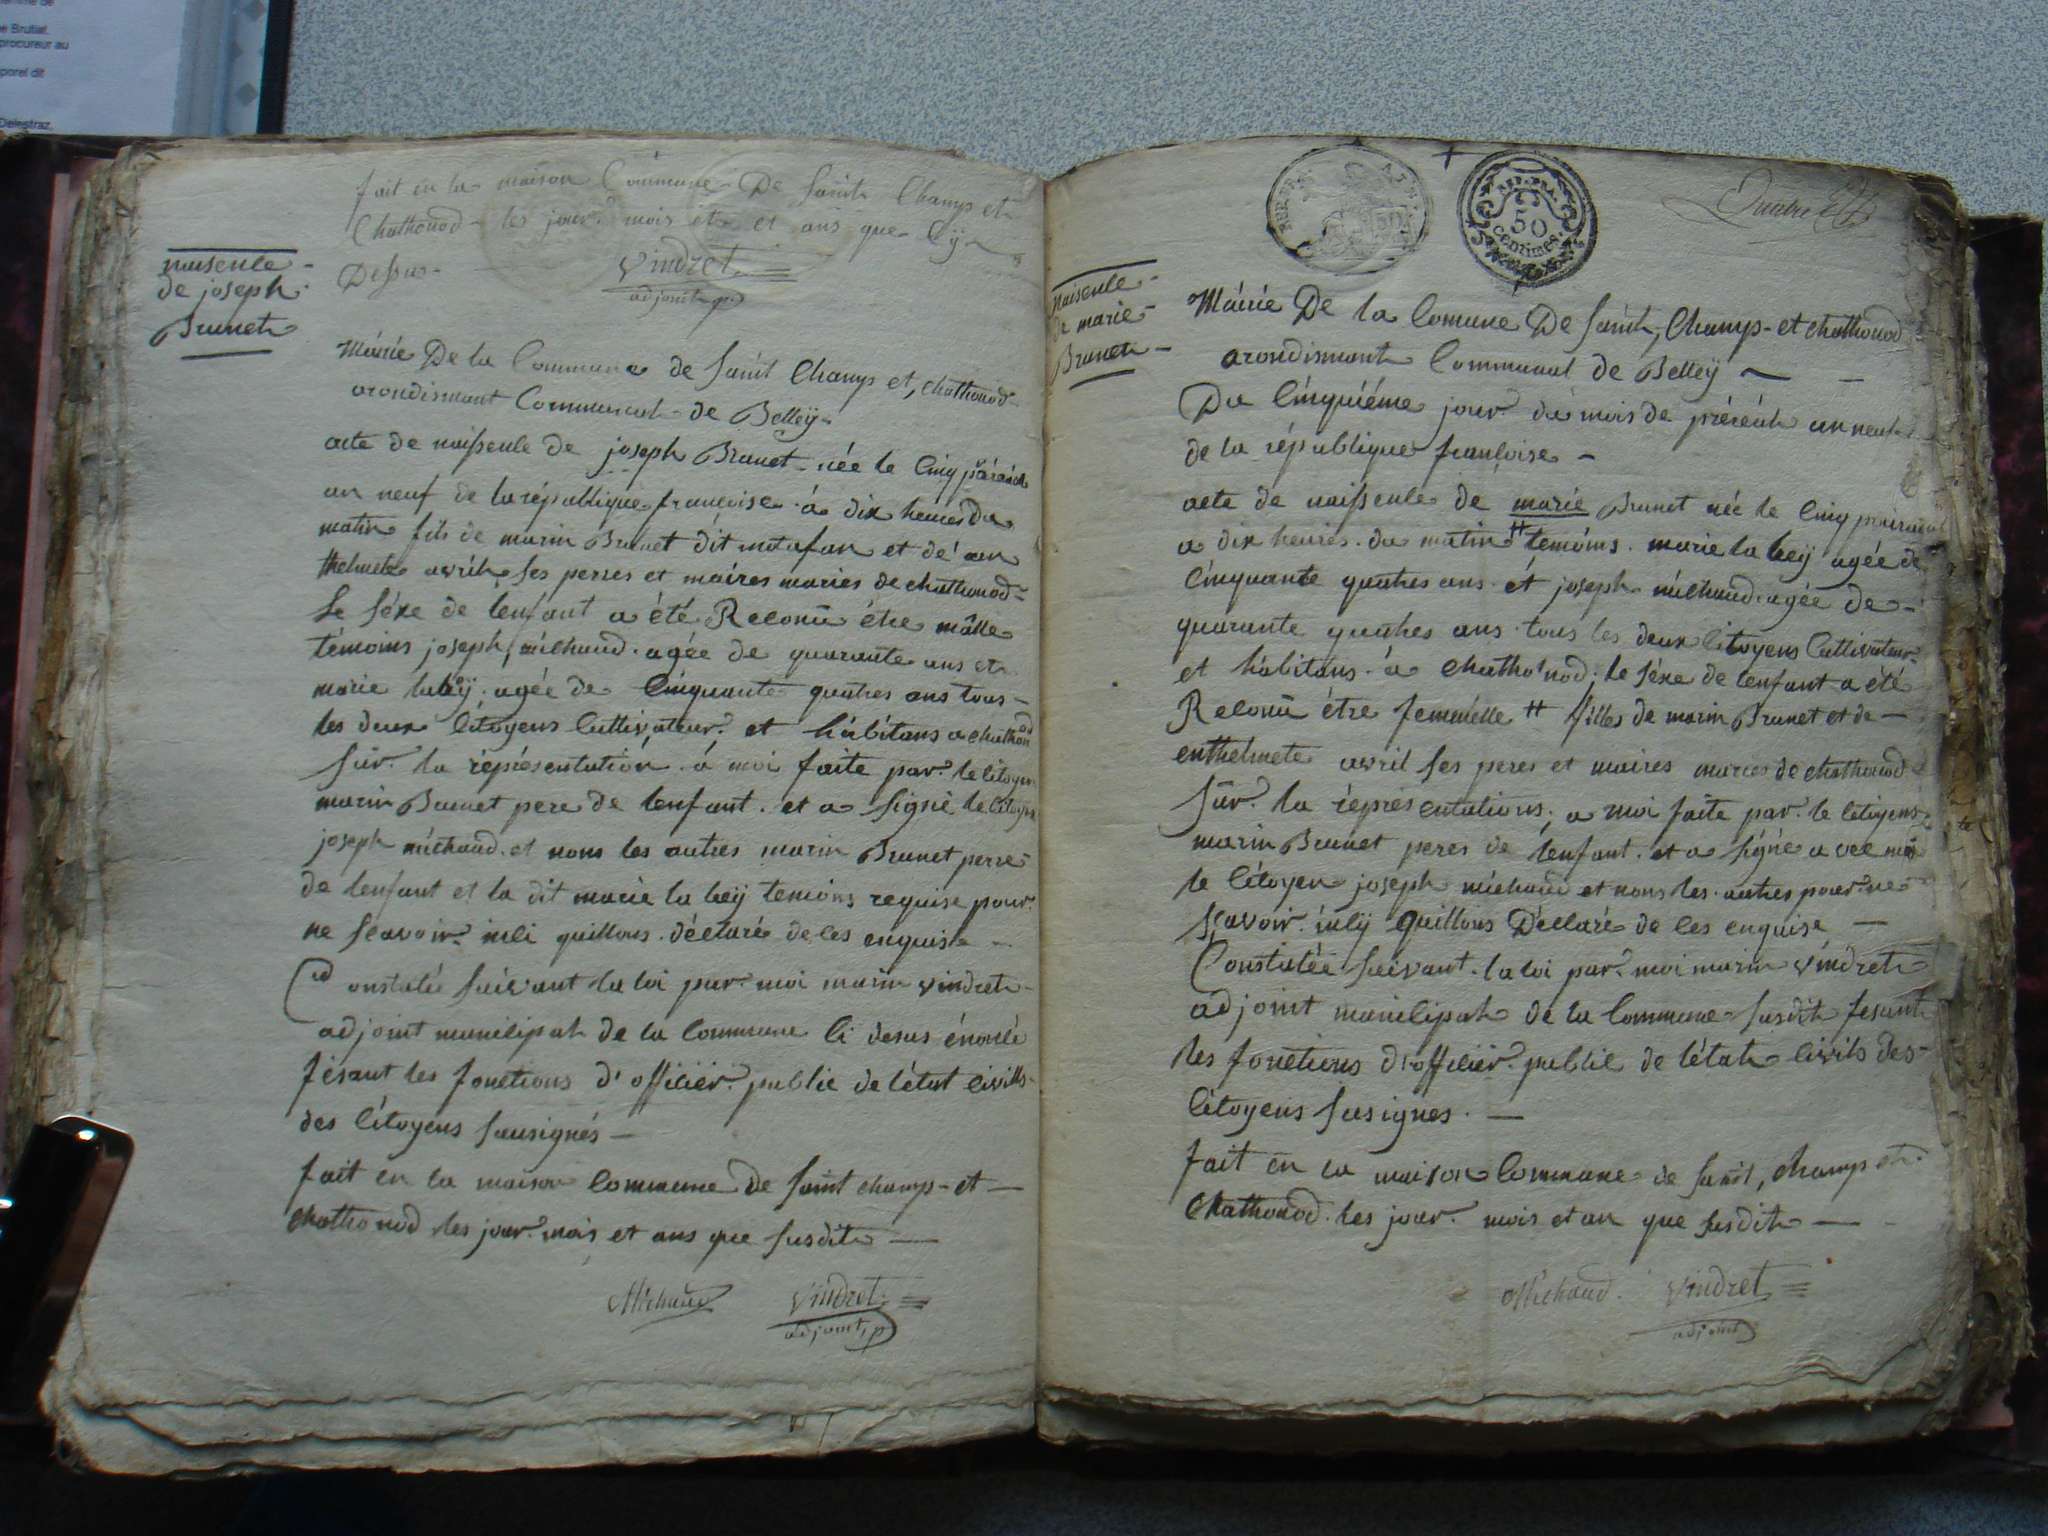 e Brutiat.
procureur au
porel dit
Delestraz,
fait en la maison Commune De Saint Champ et
Chathonod les jour mois et et ans que Cÿ
Dessus
Vindret
adjoint p
naisence
de joseph
Brunet
Mairie De la Commune de Saint Champ et, chathonod
arondismant Communal de Belleÿ
acte de naissence de joseph Brunet née le Cinq prérial
an neuf de la république françoise á dix heures du
matin fils de marin Brunet dit motafan et de an
thelmete avril ses perres et maires mariés de chathonod
Le séxe de lenfant a été Reconü étre mâlle
témoins joseph michaud agée de quarante ans et
marie labeÿ agée de Cinquante quatres ans tous
les deux Citoyens Cultivateur et hàbitans a chathonod
Sür la réprésentation á moi faite par le citoyen
marin Brunet pere de lenfant et a signé le Citoyen
joseph michaud et nons les autres marin Brunet perre
de lenfant et la dit marie la beÿ temoins requise pour
ne scavoir inci quillons déclaré de ces enquise
Constatée suivant la loi par moi marin vindret
adjoint municipal de la Commune Ci desus énoncé
fesant les fonctions d'officiér public de létat civills
des Citoyens sousignés
fait en la maison Commune de Saint champ et
chathonod les jour mois et ans que susdite
Michaud Vindret
adjoint, p
REP. FRA.
50
centimes.
naisence
de marie
Brunet
Mairie De la Comune De Saint, Champ et chathonod
arondismant Communal de Belleÿ
Du Cinquiéme jour du mois de prérial an neuf
de la république françoise
acte de naissence de marie Brunet née le Cinq prairial
a dix heures du matin # temóins marie la beÿ agée de
Cinquante quatres ans et joseph michaud agée de
quarante quatres ans tous les deux Citoyens Cultivateur
et hàbitans á chathonod le séxe de lenfant a été
Reconü étre femmelle # filles de marin Brunet et de
enthelmete avril ses peres et maires mariés de chathonod
Sür la réprésentations, a moi faite par le citoyens
marin Brunet peres de lenfant et a signé avec moi
le Citoyen joseph michaud et nons les autres pour ne
scavoir incÿ quillons Déclaré de ces enquise
Constatée suivant la loi par moi marin vindret
adjoint municipal de la Commune susdit fesant
les fonctions d'officiér public de létat civils des
Citoyens susignes
fait en la maison Commune de Saint, champ et
Chathonod les jour mois et an que susdite
Michaud Vindret
adjoint